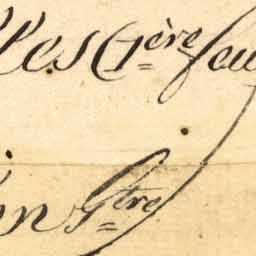 les (1ère feu
in gtre